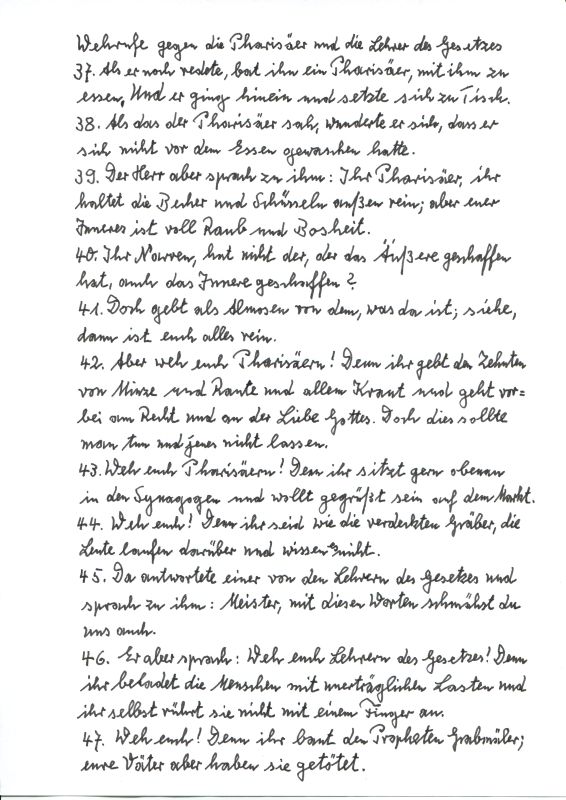 Wehrufe gegen die Pharisäer und die Lehrer des Gesetzes
37. Als er noch redete, bat ihn ein Pharisäer, mit ihm zu
essen. Und er ging hinein und setzte sich zu Tisch.
38. Als das der Pharisäer sah, wunderte er sich, dass er
sich nicht vor dem Essen gewaschen hatte.
39. Der Herr aber sprach zu ihm: Ihr Pharisäer, ihr
haltet die Becher und Schüsseln außen rein; aber euer
Inneres ist voll Raub und Bosheit.
40. Ihr Narren, hat nicht der, der das Äußere geschaffen
hat, auch das Innere geschaffen?
41. Doch gebt als Almosen von dem, was da ist; siehe,
dann ist euch alles rein.
42. Aber weh euch Pharisäern! Denn ihr gebt den Zehnten
von Minze und Raute und allem Kraut und geht vor=
bei am Recht und an der Liebe Gottes. Doch dies sollte
man tun und jenes nicht lassen.
43. Weh euch Pharisäern! Denn ihr sitzt gern obenan
in den Synagogen und wollt gegrüßt sein auf dem Markt.
44. Weh euch! Denn ihr seid wie die verdeckten Gräber, die
Leute laufen darüber und wissen es nicht.
45. Da antwortete einer von den Lehrern des Gesetzes und
sprach zu ihm: Meister, mit diesen Worten schmähst du
uns auch.
46. Er aber sprach: Weh euch Lehrern des Gesetzes! Denn
ihr beladet die Menschen mit unerträglichen Lasten und
ihr selbst rührt sie nicht mit einem Finger an.
47. Weh euch! Denn ihr baut den Propheten Grabmäler;
eure Väter aber haben sie getötet.